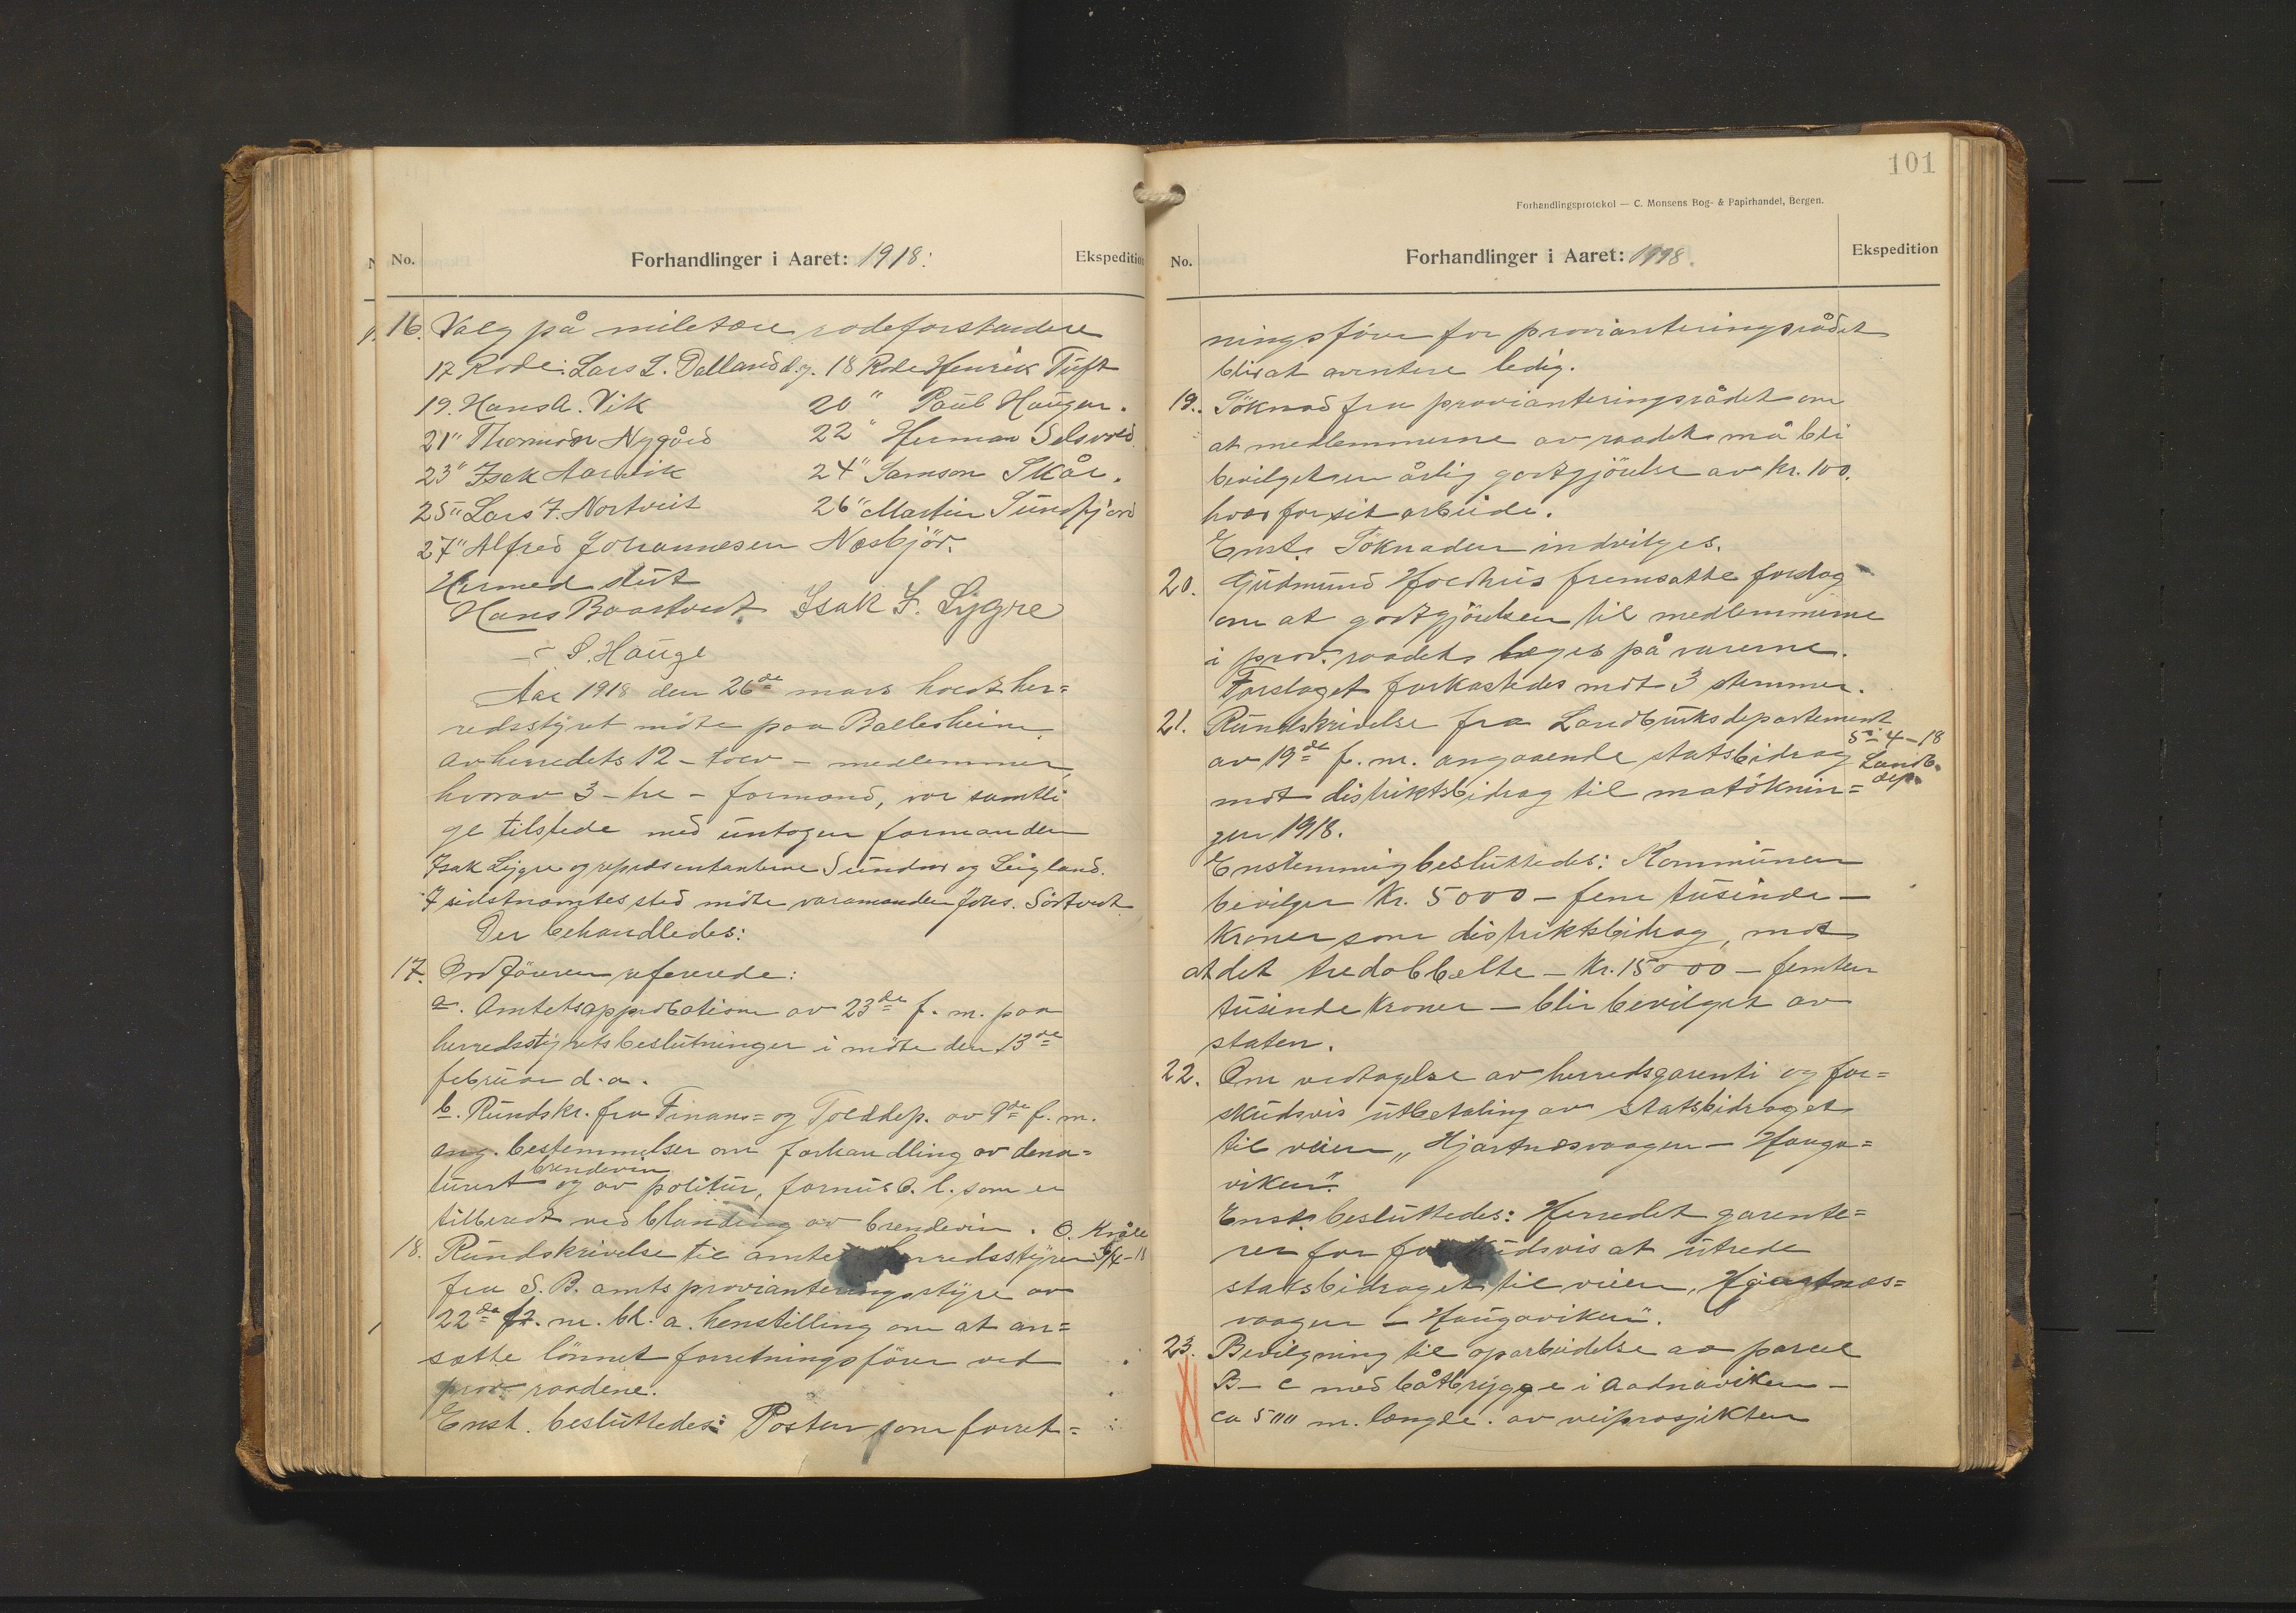 No.
Forhandlinger i Aaret: 1918.
Ekspedition
16. Valg på miletære rodeforstandere
17 Rode: Lars L. Dalland d.y. 18 Rode Henrik Tuft
19. Hans A. Vik 20" Paul Haugen.
21" Thormod Nygård 22" Herman Selsvold
23" Isak Aarvik 24" Samson Skår.
25" Lars J. Nortveit 26" Martin Sundfjord
27" Alfred Johannesen Nesbjör.
Hermed slut
Hans Baartvedt Isak F. Lygre
S. Hauge
Aar 1918 den 26de mars holdt her=
redsstyret möte paa Ballesheim.
av herredets 12 - tolv - medlemmer
hvorav 3 - tre - formænd, var samtli
ge tilstede med untagen formanden
Isak Lygre og repræsentanterne Sundnes og Leigland.
I sidstnævntes sted möte varamanden Johs. Sörtveit
Der behandledes:
17. Ordföreren refererede:
a. Amtets approbation av 23de f. m. paa
herredsstyrets beslutninger i möte den 13de
februar d. a.
b. Rundskr. fra Finans= og Tolddep. av 9de f. m.
ang. bestemmelser om forhandling av dena=
turert brendevin og av politur, fernis o. l. som er
tilberedt ved blanding av brendevin.
O. Kvåle
5/4-18
18. Rundskrivelse til amtets herredsstyrer
fra S. B. amts provianteringsstyre av
22de f. m. bl. a. henstilling om at an=
sætte lönnet forretningsförer ved
prov. raadene.
Enst. besluttedes: Posten som forret=
101
Forhandlingsprotokol — C. Monsens Bog- & Papirhandel, Bergen.
No.
Forhandlinger i Aaret: 1918.
Ekspedition
ningsförer for provianteringsrådet
blir at avertere ledig.
19. Söknad fra provianteringsrådet om
at medlemmerne av raadet må bli
bevilget en årlig godtgjörelse av kr. 100.
hver for sit arbeide.
Enst. Söknaden indvilges.
20. Gudmund Holdhus fremsatte forslag
om at godtgjörelsen til medlemmerne
i prov. raadet læges på varerne.
Forslaget forkastedes mot 3 stemmer.
21. Rundskrivelse fra Landbruksdepartement
av 19de f. m. angaaende statsbidrag
5-4-18
Landb.
dep.
mot distriktsbidrag til matöknin=
gen 1918.
Enstemmig besluttedes: Kommunen
bevilger kr. 5000 - fem tusinde -
kroner som distriktsbidrag, mot
at det tredobbelte - kr. 15000 - femten
tusinde kroner - blir bevilget av
staten.
22. Om vedtagelse av herredsgarenti og for=
skudsvis utbetaling av statsbidraget
til veien „Hjartnesvaagen - Hauga=
viken".
Enst. besluttedes: Herredet garente=
rer for forskudsvis at utrede
statsbidraget til veien „Hjartnes=
vaagen - Haugaviken".
23. Bevilgning til oparbeidelse av parcel
B - C med båtbrygge i Aadnaviken -
ca 500 m. længde. av veiprosjekten